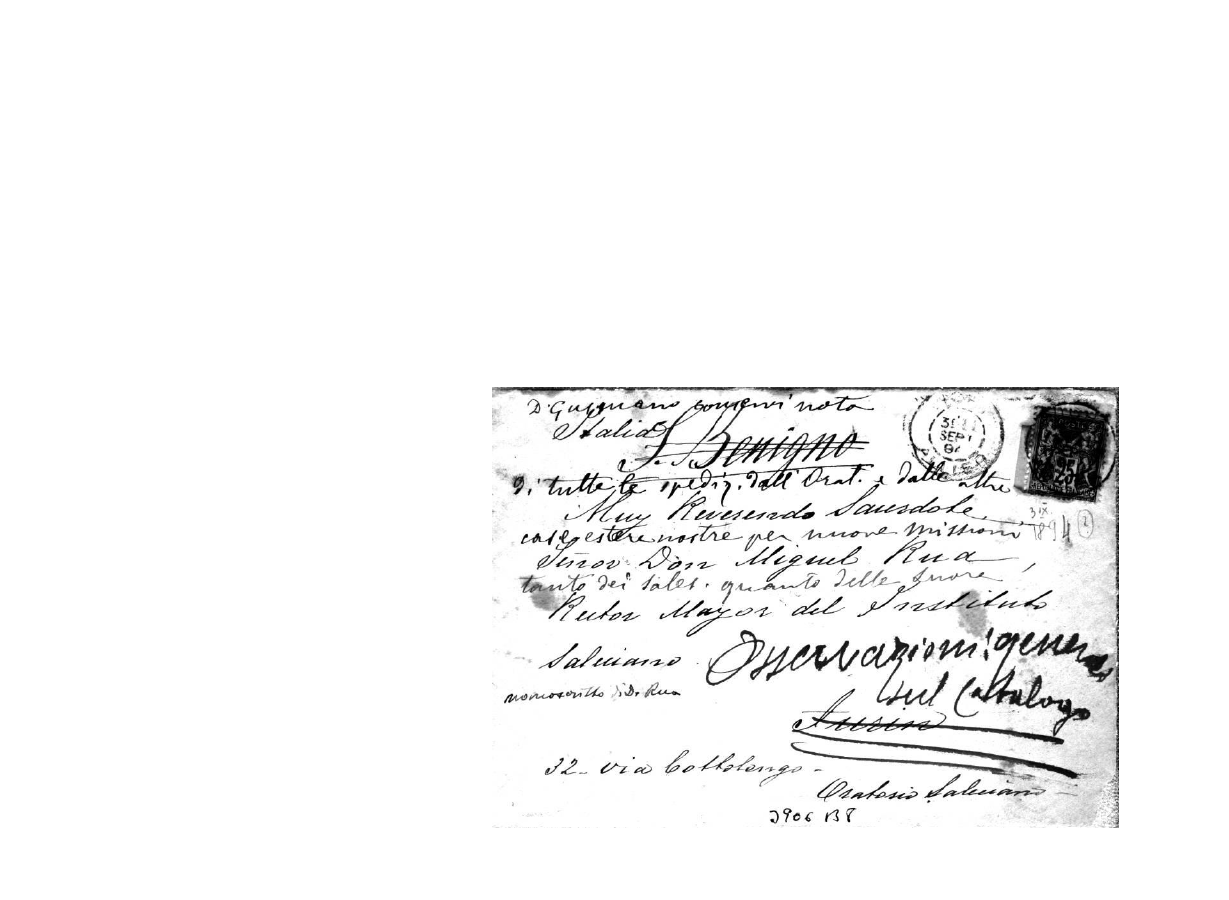 D. Gusmano conservi nota
Italia S. Benigno
di tutte le spediz. dall'Orat. e dalle altre
Muy Reverendo Sacerdote
case estere nostre per nuove missioni
3 IX 1894 2
Señor Don Miguel Rua
tanto dei Sales. quanto delle suore
Rector Mayor del Instituto
Salesiano
Osservazioni generali
manoscritto di D. Rua
sul Catalogo
Turin
32 - via Cottolengo -
Oratorio Salesiano -
3906 B8
3E
SEPT
94
25